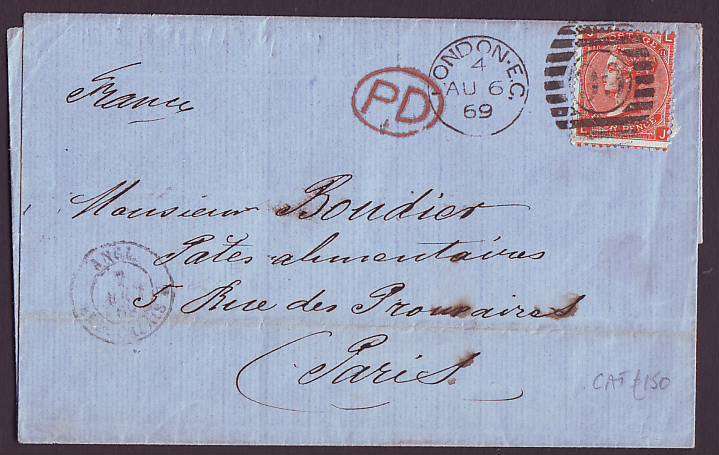 France
PD
LONDON·E.C.
4
AU 6
69
POSTAGE
Monsieur Boudier
Pates alimentaires
5 Rue des Prouvaires
Paris
ANGL.
CAT £150